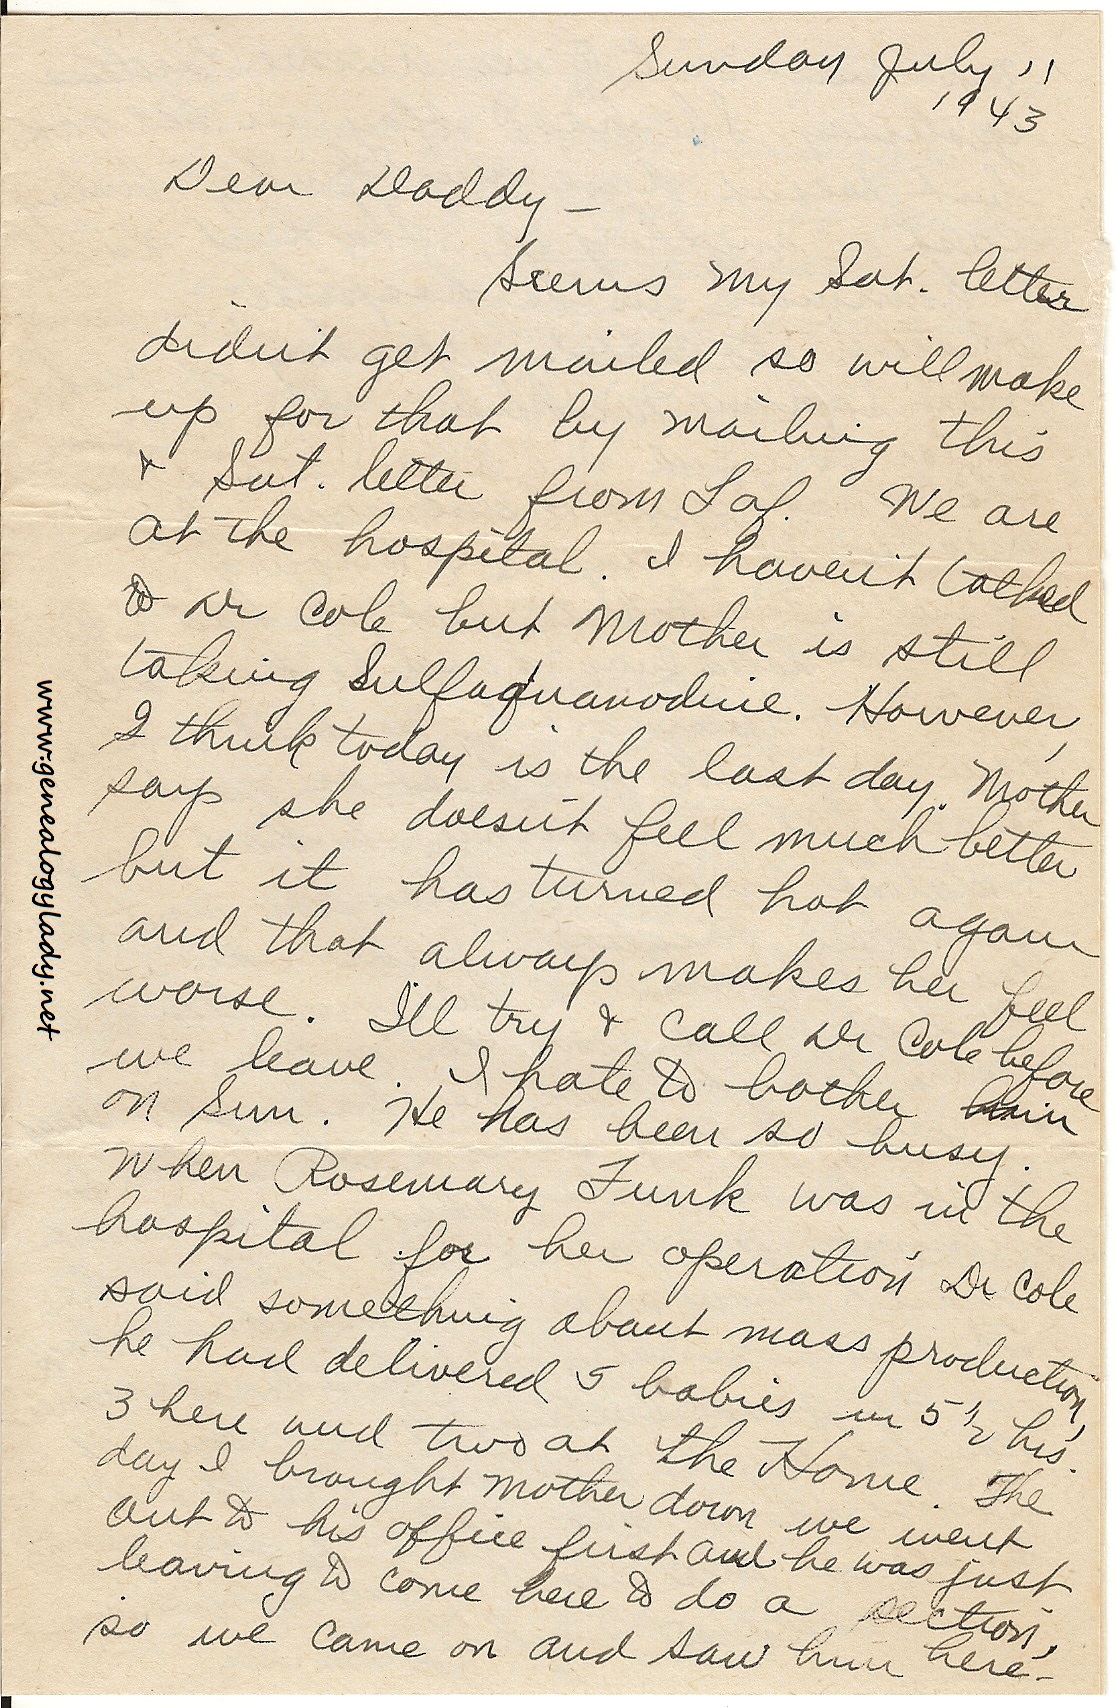 Sunday July 11
1943
Dear Daddy –
Seems my Sat. letter
didn't get mailed so will make
up for that by mailing this
& Sat. letter from Laf. We are
at the hospital. I haven't talked
to Dr Cole but Mother is still
taking Sulfaquanodine. However,
I think today is the last day. Mother
says she doesn't feel much better
but it has turned hot again
and that always makes her feel
worse. I'll try & call Dr Cole before
we leave. I hate to bother him
on Sun. He has been so busy.
When Rosemary Funk was in the
hospital for her operation Dr Cole
said something about mass production,
he had delivered 5 babies in 5 1/2 hrs.
3 here and two at the Home. The
day I brought Mother down we went
out to his office first and he was just
leaving to come here to do a section,
so we came on and saw him here –
www.genealogylady.net